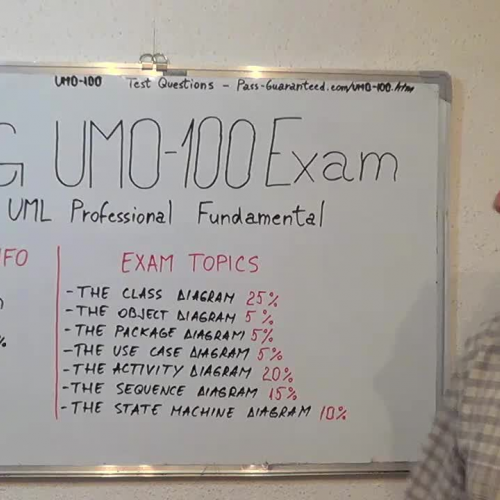 UMO-100 Test Questions - Pass-Guaranteed.com/UMO-100.htm
G UMO-100 Exam
UML Professional Fundamental
FO
EXAM TOPICS
- THE CLASS DIAGRAM 25%
- THE OBJECT DIAGRAM 5%
- THE PACKAGE DIAGRAM 5%
- THE USE CASE DIAGRAM 5%
%
- THE ACTIVITY DIAGRAM 20%
- THE SEQUENCE DIAGRAM 15%
- THE STATE MACHINE DIAGRAM 10%